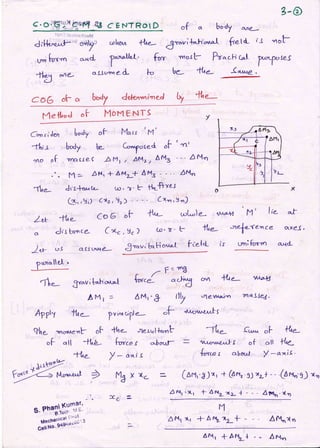 3-②
C.O.G, C.M & CENTROID of a body are
different only when the gravitational field is not
uniform and parallel. For most Practical purposes
they are assumed to be the Same.
COG of a body determined by the
Method of MOMENTS
Consider body of Mass 'M'
This body be Composed of 'n'
no of masses ΔM₁, ΔM₂, ΔM₃ .... ΔMn
∴ M = ΔM₁ + ΔM₂ + ΔM₃ .... ΔMn
The distance w.r.t the Axes
(x₁,y₁) (x₂,y₂) ..... (xn,yn)
Let the COG of the whole mass 'M' lie at
a distance (xc, yc) w.r.t the reference axes.
Let us assume gravitational field is uniform and
parallel.
F = mg
The gravitational force acting on the mass
ΔM₁ = ΔM₁.g lly remain masses.
Apply the principle of moments
The moment of the resultant
of all the forces about =
the y-axis
The Sum of the
moments of all the
forces about y-axis.
Force x distance → Moment ⇒ Mg x xc = (ΔM₁.g)x₁ + (ΔM₂.g)x₂ + ..(ΔMn.g)xn
∴ xc = ΔM₁.x₁ + ΔM₂.x₂ + .... ΔMn.xn
M
= ΔM₁x₁ + ΔM₂x₂ + .... ΔMnxn
ΔM₁ + ΔM₂ + ... ΔMn
S. Phani Kumar,
B.Tech M.E.
Mechanical
Cell No.
y
x₃
ΔM₃
x₁
ΔM₁
c
xc
ΔM₂
yc
y₂
0
x